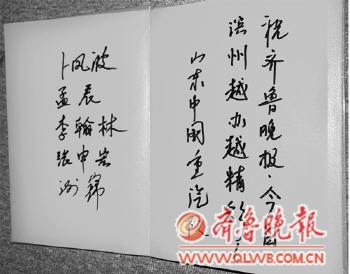 卜凤波
孟辰
李翰林
张申岩
祝齐鲁晚报·今日
滨州越办越精彩！
山东中国重汽
齐鲁晚报
WWW.QLWB.COM.CN